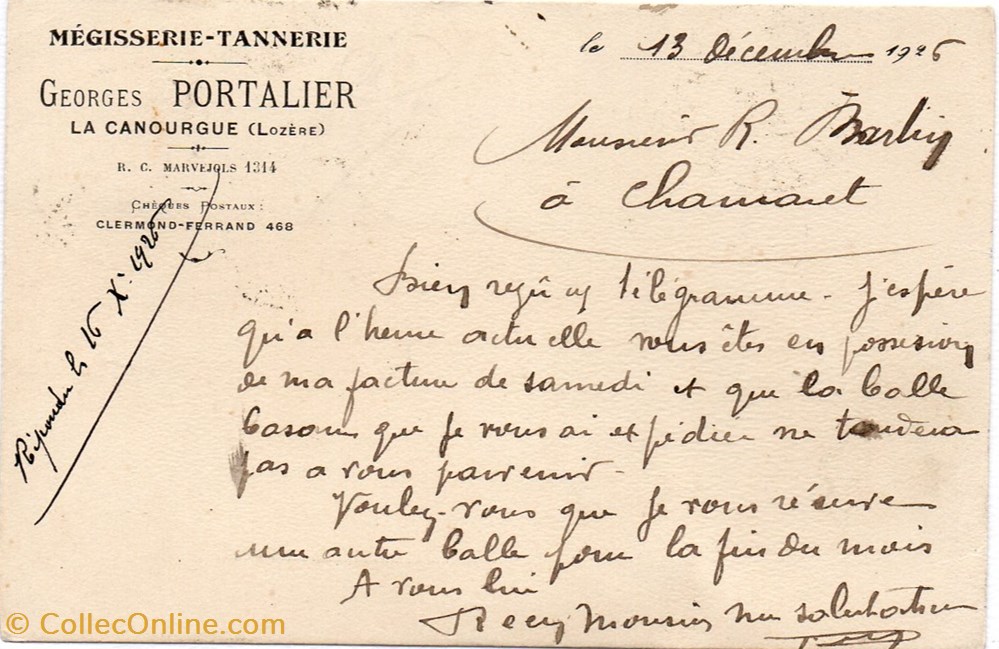 MÉGISSERIE-TANNERIE
GEORGES PORTALIER
LA CANOURGUE (LOZÈRE)
R. C. MARVEJOLS 1314
CHÈQUES POSTAUX :
CLERMOND-FERRAND 468
le 13 décembre 1926
Monsieur R. Barbin
à Chamaret
Répondu le 16 Xe 1926
Bien reçu télégramme. J'espère
qu'à l'heure actuelle vous êtes en possession
de ma facture de samedi et que la balle
basane que je vous ai expédiée ne tardera
pas a vous parvenir.
Voulez-vous que je vous réserve
une autre balle pour la fin du mois
A vous lire
Recevez Monsieur mes salutations
© CollecOnline.com